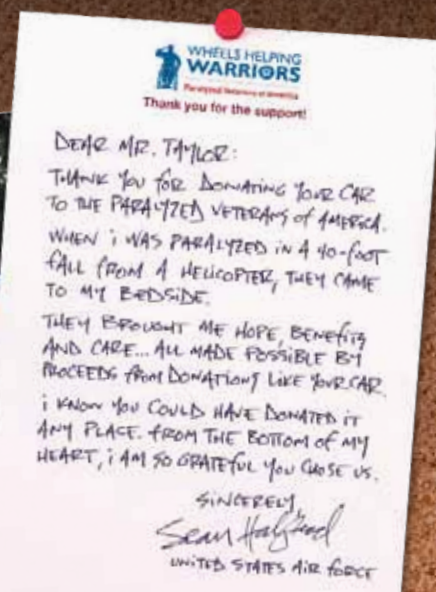 WHEELS HELPING
WARRIORS
Paralyzed Veterans of America
Thank you for the support!
DEAR MR. TAYLOR:
THANK YOU for DONATING YOUR CAR
TO THE PARALYZED VETERANS of AMERICA.
WHEN i WAS PARALYZED IN A 40-fOOT
fALL fROM A HELICOPTER, THEY CAME
TO MY BEDSIDE.
THEY BROUGHT ME HOPE, BENEfiTS
AND CARE... ALL MADE POSSIBLE BY
PROCEEDS fROM DONATIONS LIKE YOUR CAR.
i KNOW YOU COULD HAVE DONATED IT
ANY PLACE. fROM THE BOTTOM of MY
HEART, i AM SO GRATEfUL YOU CHOSE US.
SiNCERELY,
Sean
UNITED STATES AiR fORCE